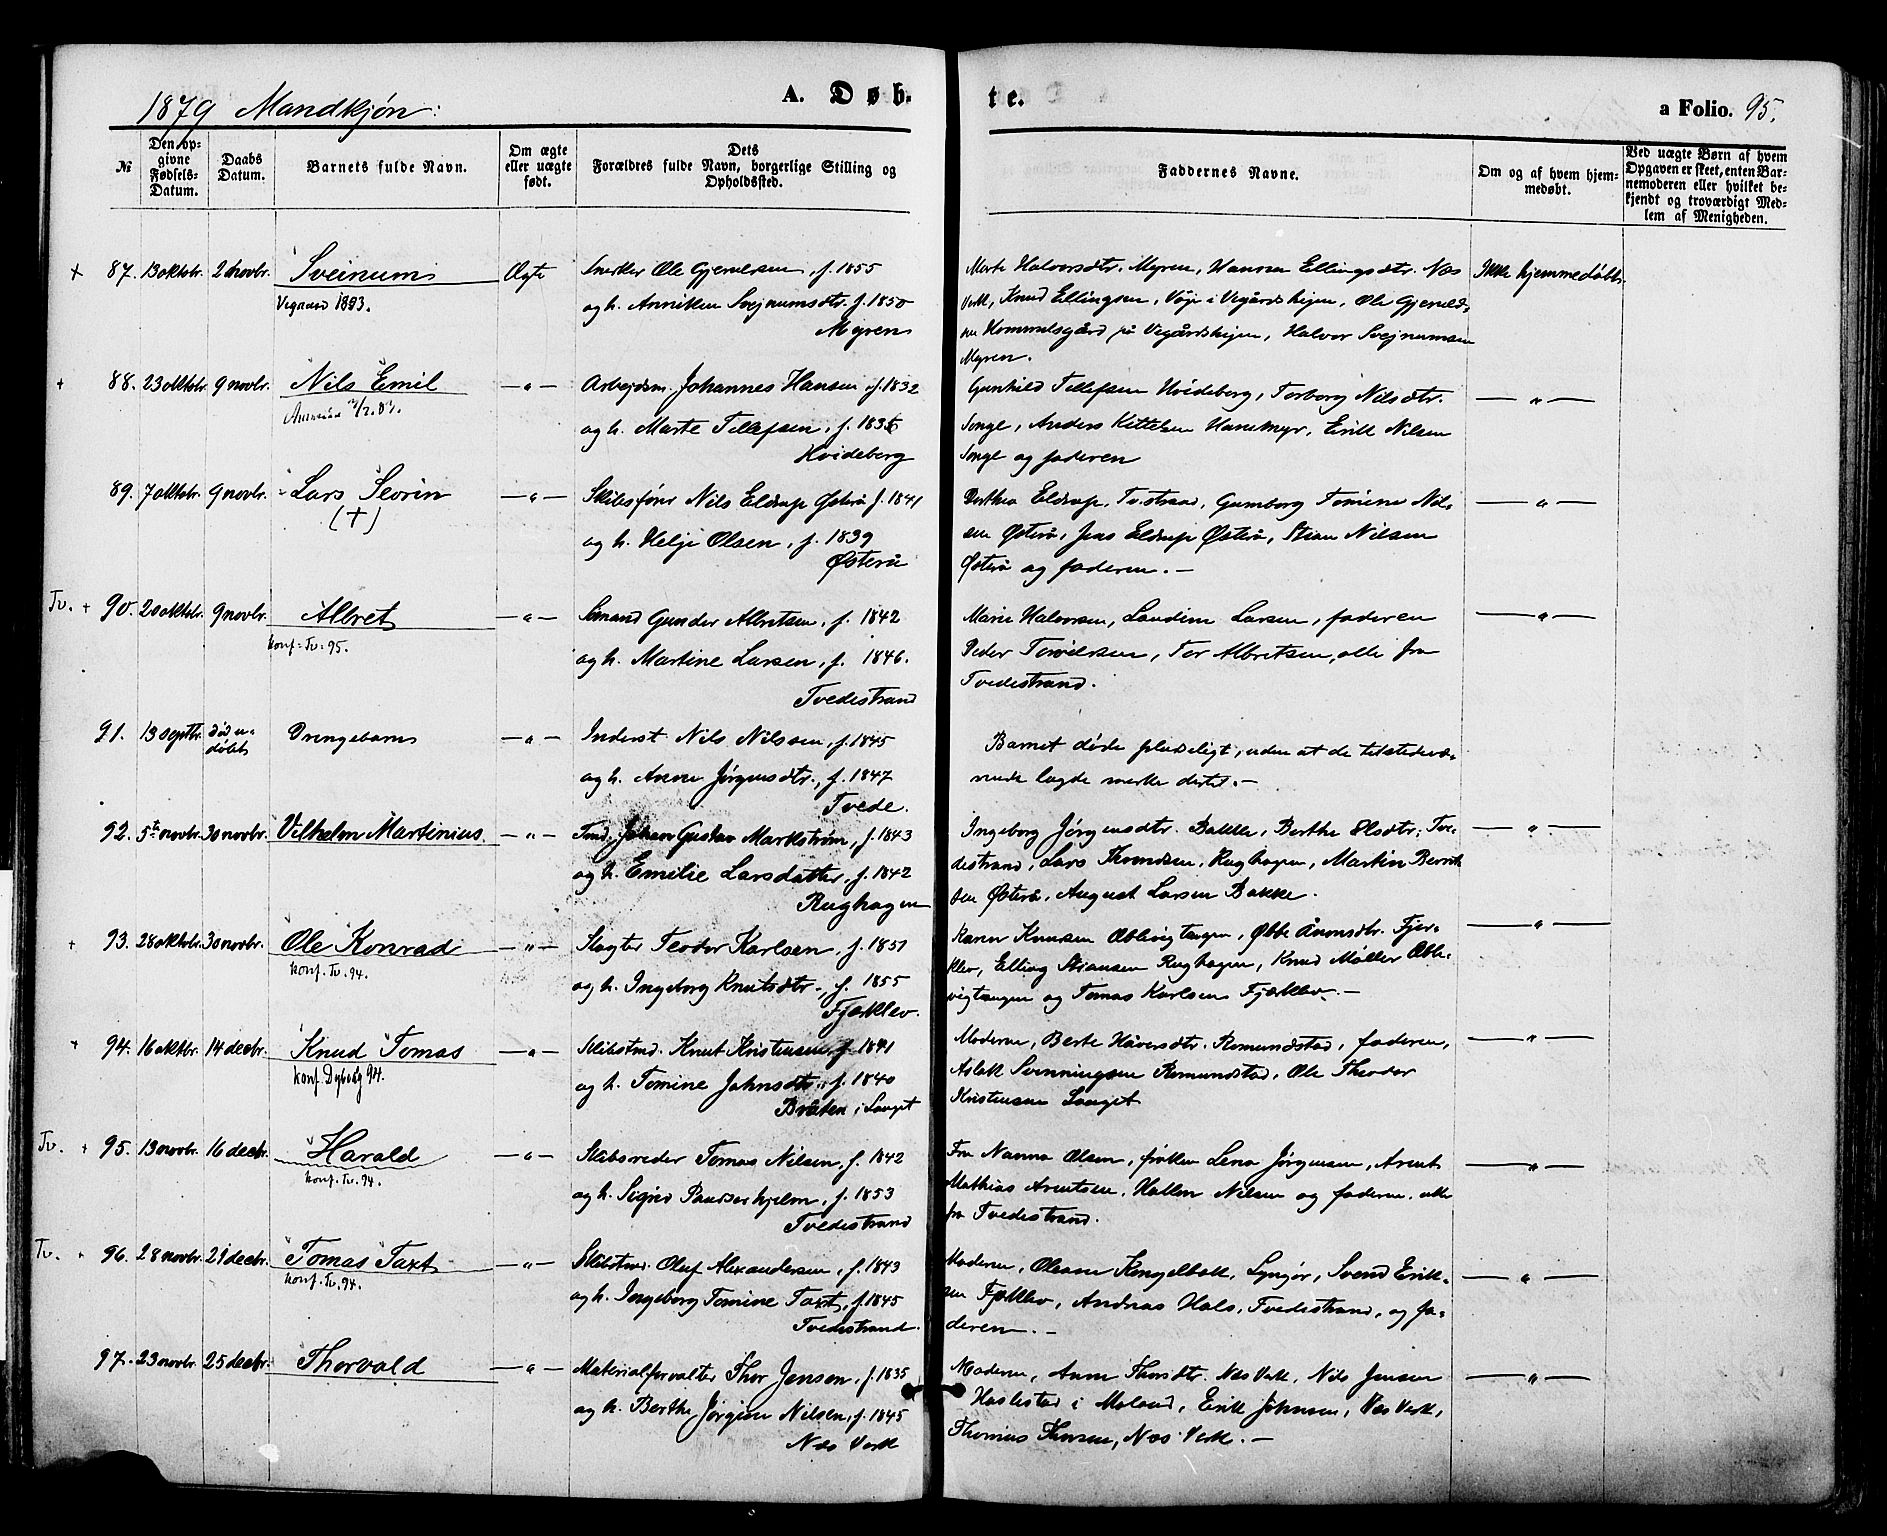 1879 Mandkjøn:
A. Døb-
te.
a Folio. 95.
№
Den op-
givne
Fødsels-
Datum.
Daabs
Datum.
Barnets fulde Navn.
Om ægte
eller uægte
født.
Dets
Forældres fulde Navn, borgerlige Stilling og
Opholdssted.
Faddernes Navne.
Om og af hvem hjem-
medøbt.
Ved uægte Børn af hvem
Opgaven er skeet, enten Bar-
nemoderen eller hvilket be-
kjendt og troværdigt Med-
lem af Menigheden.
+ 87. 13 oktobr. 2 novbr. Sveinum Ægte Snerker Ole Gjerulsen, f. 1855
1883. og h. Anniken Svejnumsdtr. f. 1850
Myren
Marte Halvorsdtr. Myren, Hanna Ellingsdtr. Næs Ikke hjemmedøbt.
Verk, Knud Ellingsen, Vøje i Vegårdshejen, Ole Gjeruld-
sen Hommelsgård på Vegårdshejen, Halvor Svejnumsen
Myren.
+ 88. 23 oktobr. 9 novbr. Nils Emil —„— Arbejdsm. Johannes Hansen, f. 1832
og h. Marte Tellefsen, f. 1835
Hvideberg
Gunhild Tellefsen Hvideberg, Torborg Nilsdtr. —„—
Songe, Anders Kittelsen Hanemyr, Erik Nilsen
Songe og faderen
89. 7 oktobr. 9 novbr. Lars Severin —„— Skibsfører Nils Eldrup Østerå f. 1841
(+) og h. Helje Olsen, f. 1839
Østerå
Dorthea Eldrup, Tvestrand, Gumborg Tomine Nil- —„—
sen Østerå, Jens Eldrup Østerå, Stian Nilsen
Østerå og faderen. —
Tv. + 90. 20 oktobr. 9 novbr. Albret —„— Sømand Gunder Albretsen, f. 1842
konf. Tv. 95. og h. Martine Larsen, f. 1846.
Tvedestrand
Marie Halvorsen, Laudine Larsen, faderen —„—
Peder Torvildsen, Tor Albretsen, alle fra
Tvedestrand.
91. 13 septbr. død u- Drengebarn —„— Inderst Nils Nilssen, f. 1845
døbt og h. Anne Jørgensdtr., f. 1847
Tvede.
Barnet døde pludseligt, uden at de tilstedevæ-
rende lagde merke dertil. —
92. 5te novbr. 30 novbr. Vilhelm Martinius. —„— Tmd. Johan Gustav Markstrøm, f. 1843
og h. Emilie Larsdatter, f. 1842
Rughagen
Ingeborg Jørgensdtr. Bakke, Berthe Olsdtr. Tve- —„—
destrand, Lars Thomdsen, Rughagen, Martin Bernt-
sen Østerå, August Larsen Bakke.
+ 93. 28 oktobr. 30 novbr. Ole Konrad —„— Slagter Teodor Karlsen, f. 1851
konf. Tv. 94. og h. Ingeborg Knutsdtr., f. 1855
Fjærklev.
Karen Knutsen Æblevigtangen, Ebbe Ånonsdtr. Fjær- —„—
klev, Elling Stiansen Rughagen, Knud Møller Æble-
vigtangen og Tomas Karlsen Fjærklev. —
+ 94. 16 oktbr. 14 decbr. Knud Tomas —„— Skibstmd. Knut Kristensen, f. 1841
konf. Dybvåg 94. og h. Tomine Johnsdtr., f. 1840
Bråten i Sauget
Moderen, Berte Håversdtr. Romundstad, faderen, —„—
Aslak Svenningsen Romundstad, Ole Theodor
Kristensen Sauget
Tv. + 95. 13 novbr. 16 decbr. Harald —„— Skibsreder Tomas Nilsen, f. 1842
konf. Tv. 94. og h. Signe Paursverhjelm, f. 1853
Tvedestrand
Fru Nanna Olsen, frøken Lena Jørgensen, Arent —„—
Mathias Arentsen, Hallen Nilsen og faderen, alle
fra Tvedestrand.
Tv. + 96. 28 novbr. 21 decbr. Tomas Taxt —„— Skibstmd. Oluf Alexandersen, f. 1843
konf. Tv. 94. og h. Ingeborg Tomine Taxt, f. 1845
Tvedestrand.
Moderen, Oleane Kongelbæk, Lyngør, Svend Erik- —„—
sen Fjærklev, Andreas Hals, Tvedestrand, og fa-
deren. —
97. 23 novbr. 25 decbr. Thorvald —„— Materialforvalter Thor Jensen, f. 1835
og h. Berthe Jørgine Nilsen, f. 1845
Næs Verk
Moderen, Anne Thorsdtr. Næs Verk, Nils Jensen —„—
Haslestad i Moland, Erik Johnsen, Næs Verk,
Thomas Thorsen, Næs Verk. —